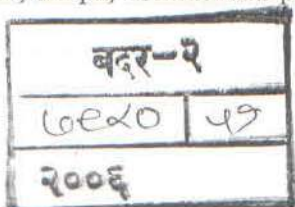 बदर-२
७९४० ५१
२००६